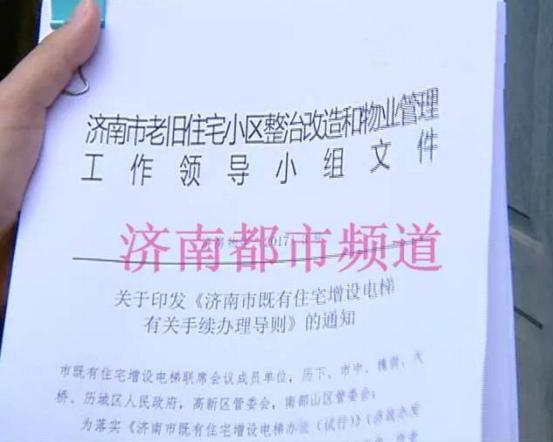 济南市老旧住宅小区整治改造和物业管理
工作领导小组文件
济南都市频道
关于印发《济南市既有住宅增设电梯
有关手续办理导则》的通知
市既有住宅增设电梯联席会议成员单位，历下、市中、槐荫、天
桥、历城区人民政府，高新区管委会，南部山区管委会：
为落实《济南市既有住宅增设电梯办法（试行）》（济政办发